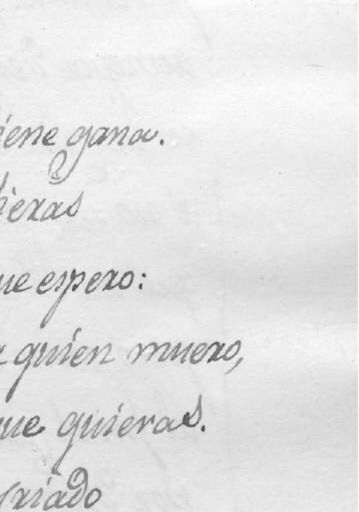 iene gana.
eras
ue espero:
quien muero,
ue quieras.
criado